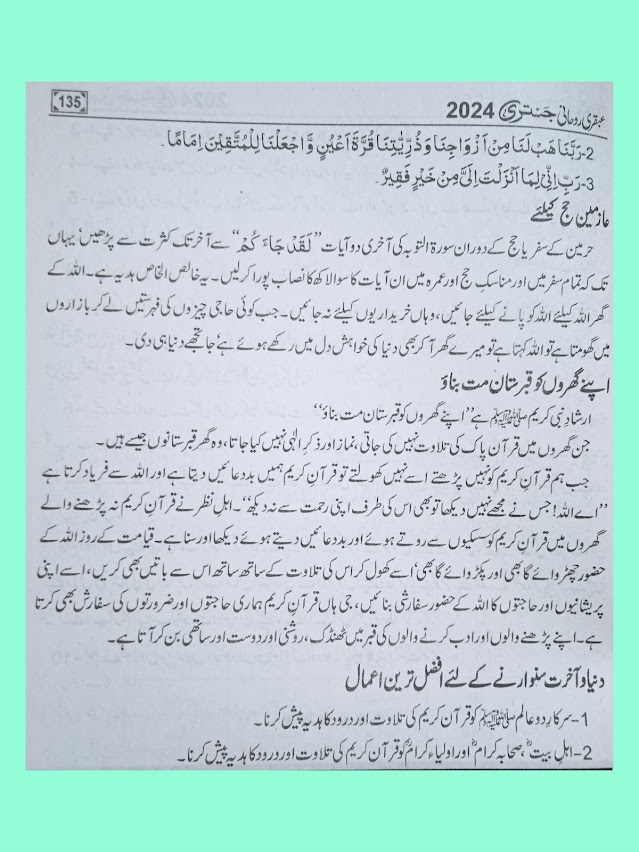 عبقری روحانی جنتری 2024 135
2-رَبَّنَا هَبْ لَنَا مِنْ اَزْوَاجِنَا وَذُرِّیّٰتِنَا قُرَّۃَ اَعْیُنٍ وَّاجْعَلْنَا لِلْمُتَّقِیْنَ اِمَامًا.
3-رَبِّ اِنِّیْ لِمَا اَنْزَلْتَ اِلَیَّ مِنْ خَیْرٍ فَقِیْرٌ.
عازمین حج کیلئے
حرمین کے سفر یا حج کے دوران سورۃ التوبہ کی آخری دو آیات ”لَقَدْ جَاءَ کُمْ“ سے آخر تک کثرت سے پڑھیں‘ یہاں
تک کہ تمام سفر میں اور مناسک حج اور عمرہ میں ان آیات کا سوا لاکھ کا نصاب پورا کرلیں۔ یہ خالص الخاص ہدیہ ہے۔ اللہ کے
گھر اللہ کیلئے اللہ کو پانے کیلئے جائیں، وہاں خریداریوں کیلئے نہ جائیں۔ جب کوئی حاجی چیزوں کی فہرستیں لے کر بازاروں
میں گھومتا ہے تو اللہ کہتا ہے تو میرے گھر آکر بھی دنیا کی خواہش دل میں رکھے ہوئے ہے‘ جا تجھے دنیا ہی دی۔
اپنے گھروں کو قبرستان مت بناؤ
ارشادِ نبی کریم ﷺ ہے ”اپنے گھروں کو قبرستان مت بناؤ“
جن گھروں میں قرآن پاک کی تلاوت نہیں کی جاتی، نماز اور ذکرِ الٰہی نہیں کیا جاتا، وہ گھر قبرستانوں جیسے ہیں۔
جب ہم قرآنِ کریم کو نہیں پڑھتے اسے نہیں کھولتے تو قرآنِ کریم ہمیں بددعائیں دیتا ہے اور اللہ سے فریاد کرتا ہے
”اے اللہ! جس نے مجھے نہیں دیکھا تو بھی اس کی طرف اپنی رحمت سے نہ دیکھ“۔ اہل نظر نے قرآنِ کریم نہ پڑھنے والے
گھروں میں قرآنِ کریم کو سسکیوں سے روتے ہوئے اور بددعائیں دیتے ہوئے دیکھا اور سنا ہے۔ قیامت کے روز اللہ کے
حضور چھڑوائے گا بھی اور پکڑوائے گا بھی‘ اسے کھول کر اس کی تلاوت کے ساتھ ساتھ اس سے باتیں بھی کریں، اسے اپنی
پریشانیوں اور حاجتوں کا اللہ کے حضور سفارشی بنائیں، جی ہاں قرآنِ کریم ہماری حاجتوں اور ضرورتوں کی سفارش بھی کرتا
ہے۔ اپنے پڑھنے والوں اور ادب کرنے والوں کی قبر میں ٹھنڈک، روشنی اور دوست اور ساتھی بن کر آتا ہے۔
دنیا و آخرت سنوارنے کے لئے افضل ترین اعمال
1-سرکارِ دو عالم ﷺ کو قرآنِ کریم کی تلاوت اور درود کا ہدیہ پیش کرنا۔
2-اہل بیتؓ، صحابہ کرامؓ اور اولیاء کرامؒ کو قرآنِ کریم کی تلاوت اور درود کا ہدیہ پیش کرنا۔